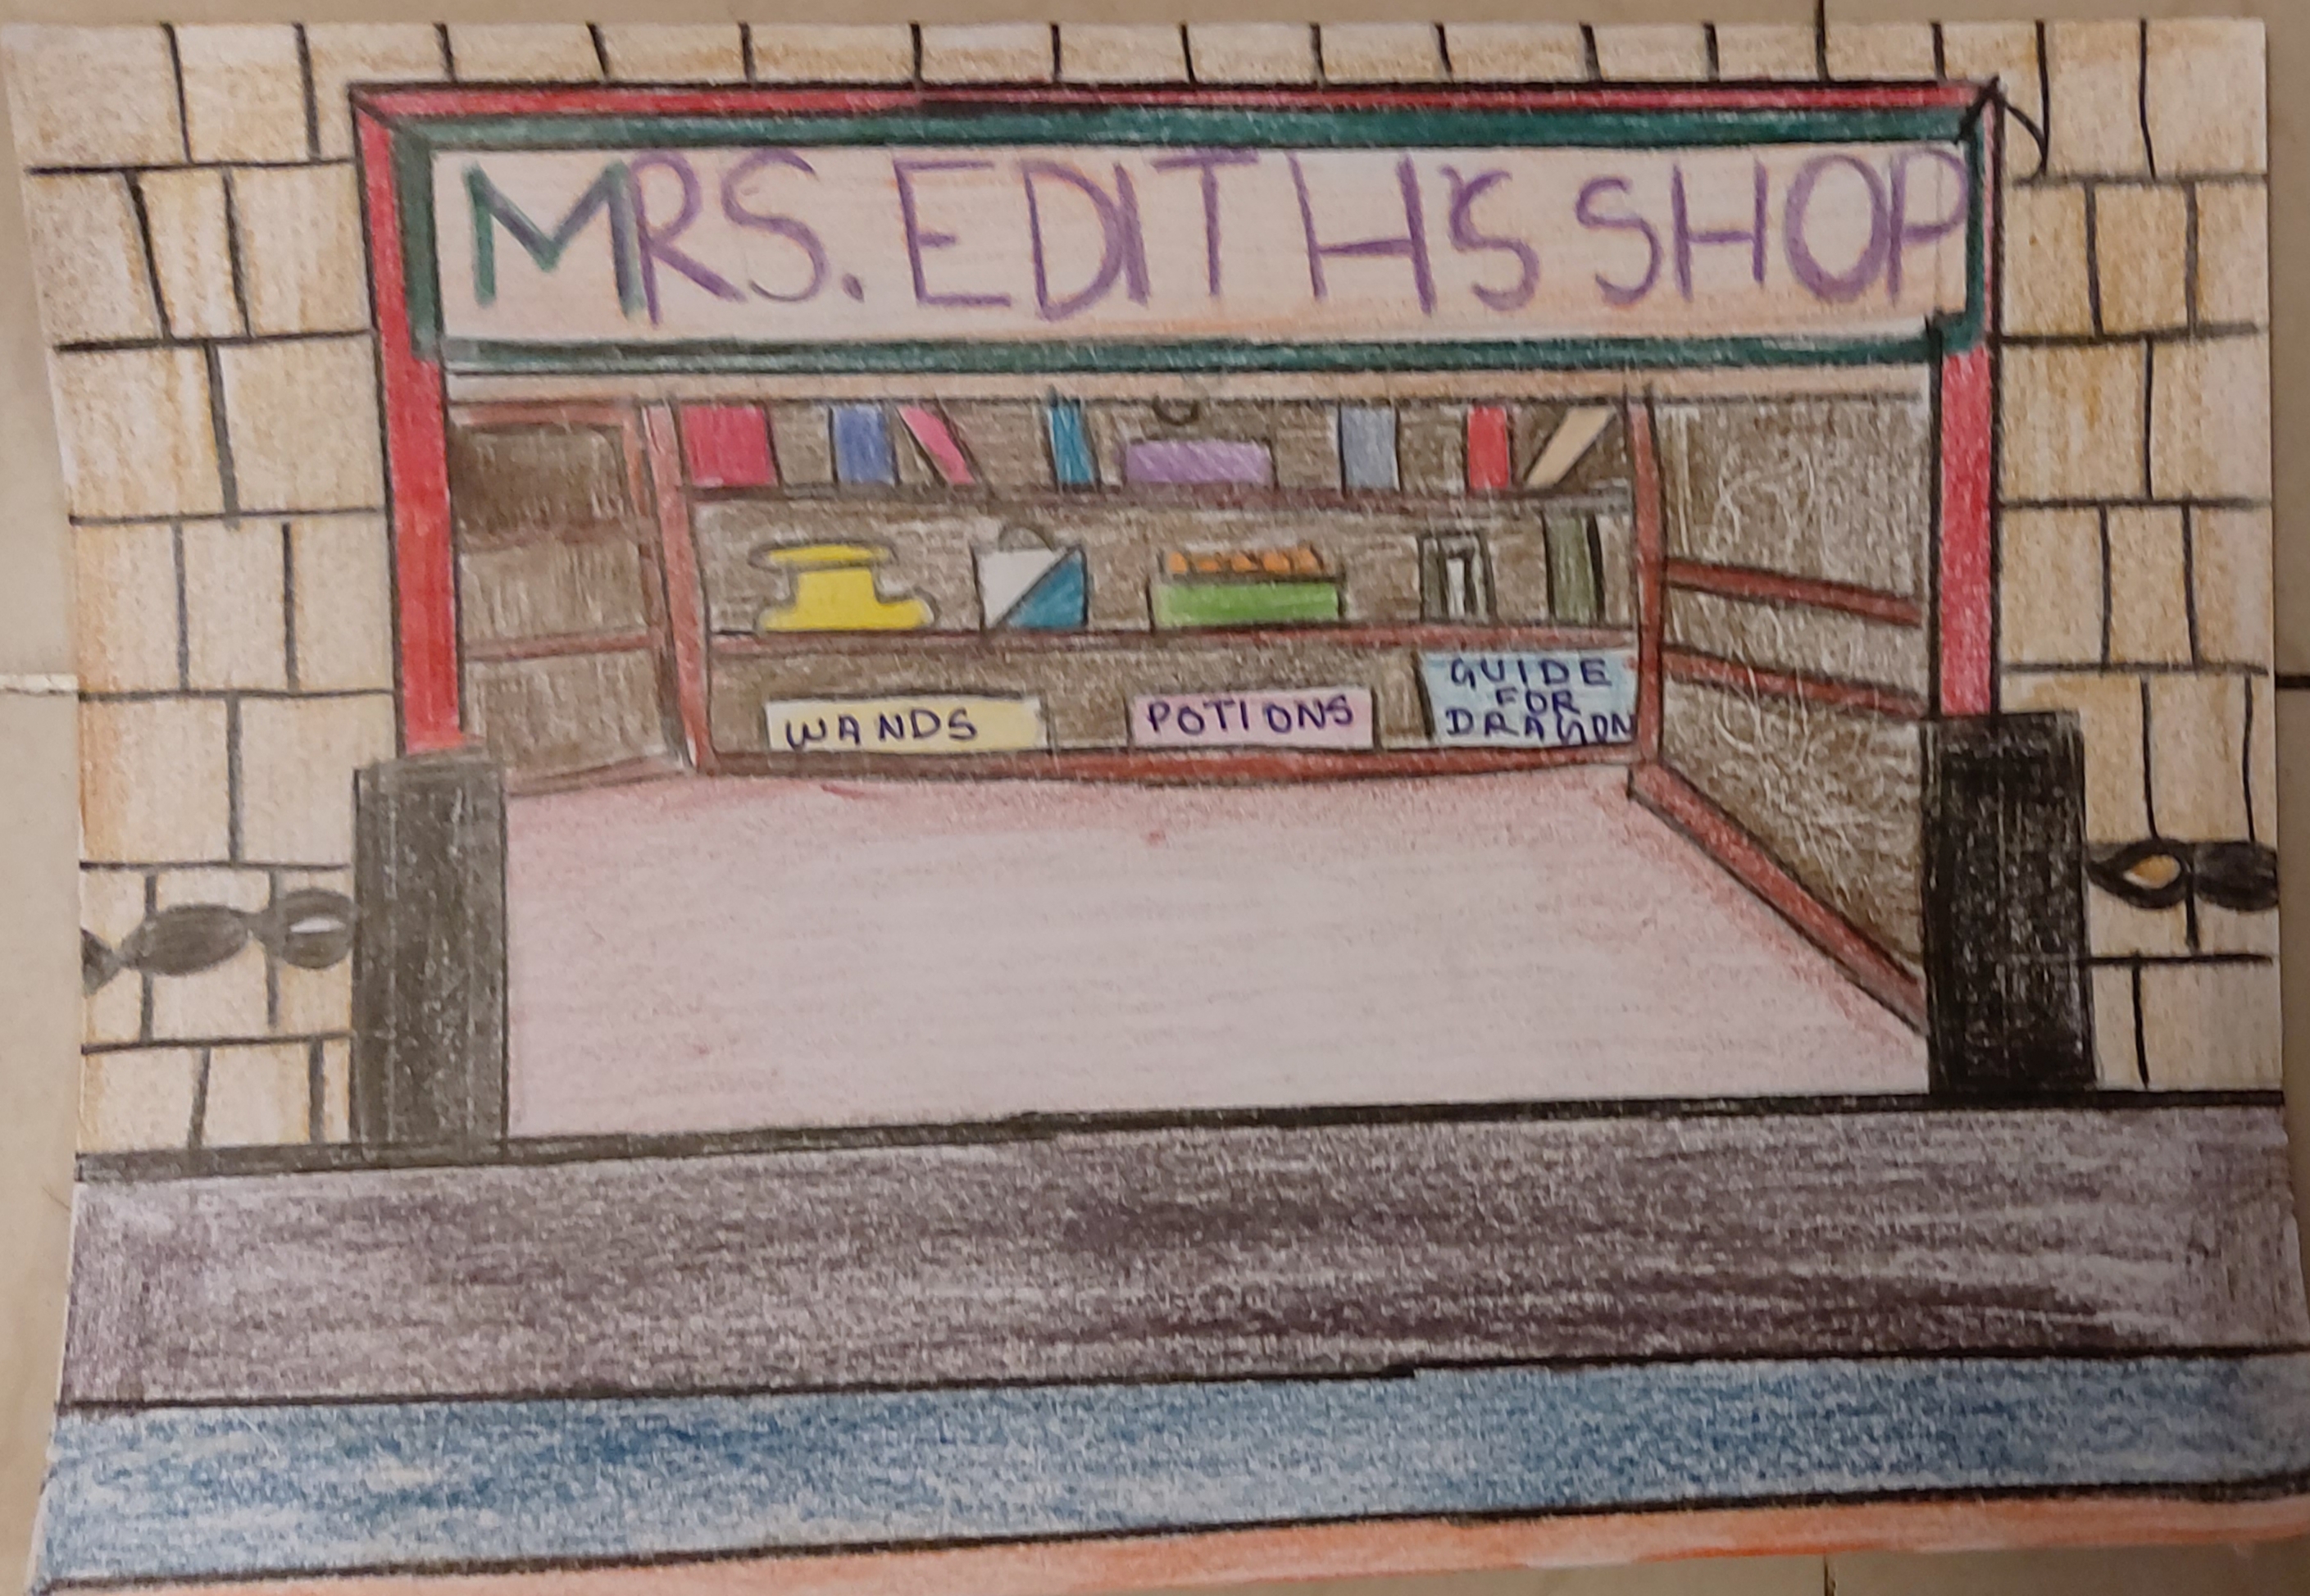 MRS. EDITH'S SHOP
WANDS
POTIONS
GUIDE
FOR
DRAGON